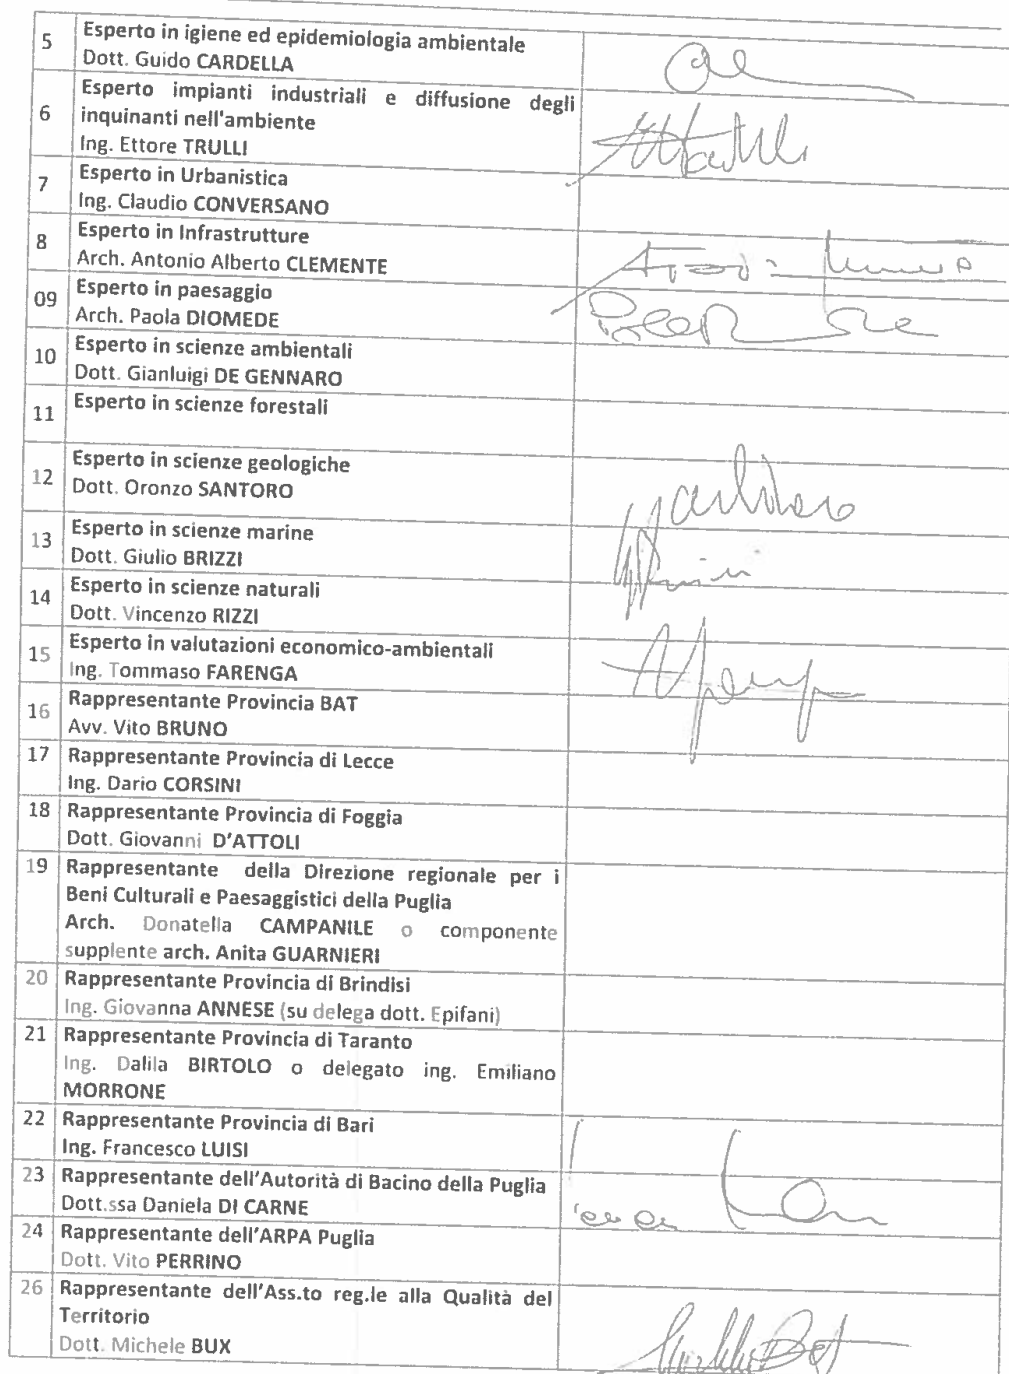 5 Esperto in igiene ed epidemiologia ambientale
Dott. Guido CARDELLA
6 Esperto impianti industriali e diffusione degli
inquinanti nell'ambiente
Ing. Ettore TRULLI
7 Esperto in Urbanistica
Ing. Claudio CONVERSANO
8 Esperto in Infrastrutture
Arch. Antonio Alberto CLEMENTE
09 Esperto in paesaggio
Arch. Paola DIOMEDE
10 Esperto in scienze ambientali
Dott. Gianluigi DE GENNARO
11 Esperto in scienze forestali
12 Esperto in scienze geologiche
Dott. Oronzo SANTORO
13 Esperto in scienze marine
Dott. Giulio BRIZZI
14 Esperto in scienze naturali
Dott. Vincenzo RIZZI
15 Esperto in valutazioni economico-ambientali
Ing. Tommaso FARENGA
16 Rappresentante Provincia BAT
Avv. Vito BRUNO
17 Rappresentante Provincia di Lecce
Ing. Dario CORSINI
18 Rappresentante Provincia di Foggia
Dott. Giovanni D'ATTOLI
19 Rappresentante della Direzione regionale per i
Beni Culturali e Paesaggistici della Puglia
Arch. Donatella CAMPANILE o componente
supplente arch. Anita GUARNIERI
20 Rappresentante Provincia di Brindisi
Ing. Giovanna ANNESE (su delega dott. Epifani)
21 Rappresentante Provincia di Taranto
Ing. Dalila BIRTOLO o delegato ing. Emiliano
MORRONE
22 Rappresentante Provincia di Bari
Ing. Francesco LUISI
23 Rappresentante dell'Autorità di Bacino della Puglia
Dott.ssa Daniela DI CARNE
24 Rappresentante dell'ARPA Puglia
Dott. Vito PERRINO
26 Rappresentante dell'Ass.to reg.le alla Qualità del
Territorio
Dott. Michele BUX